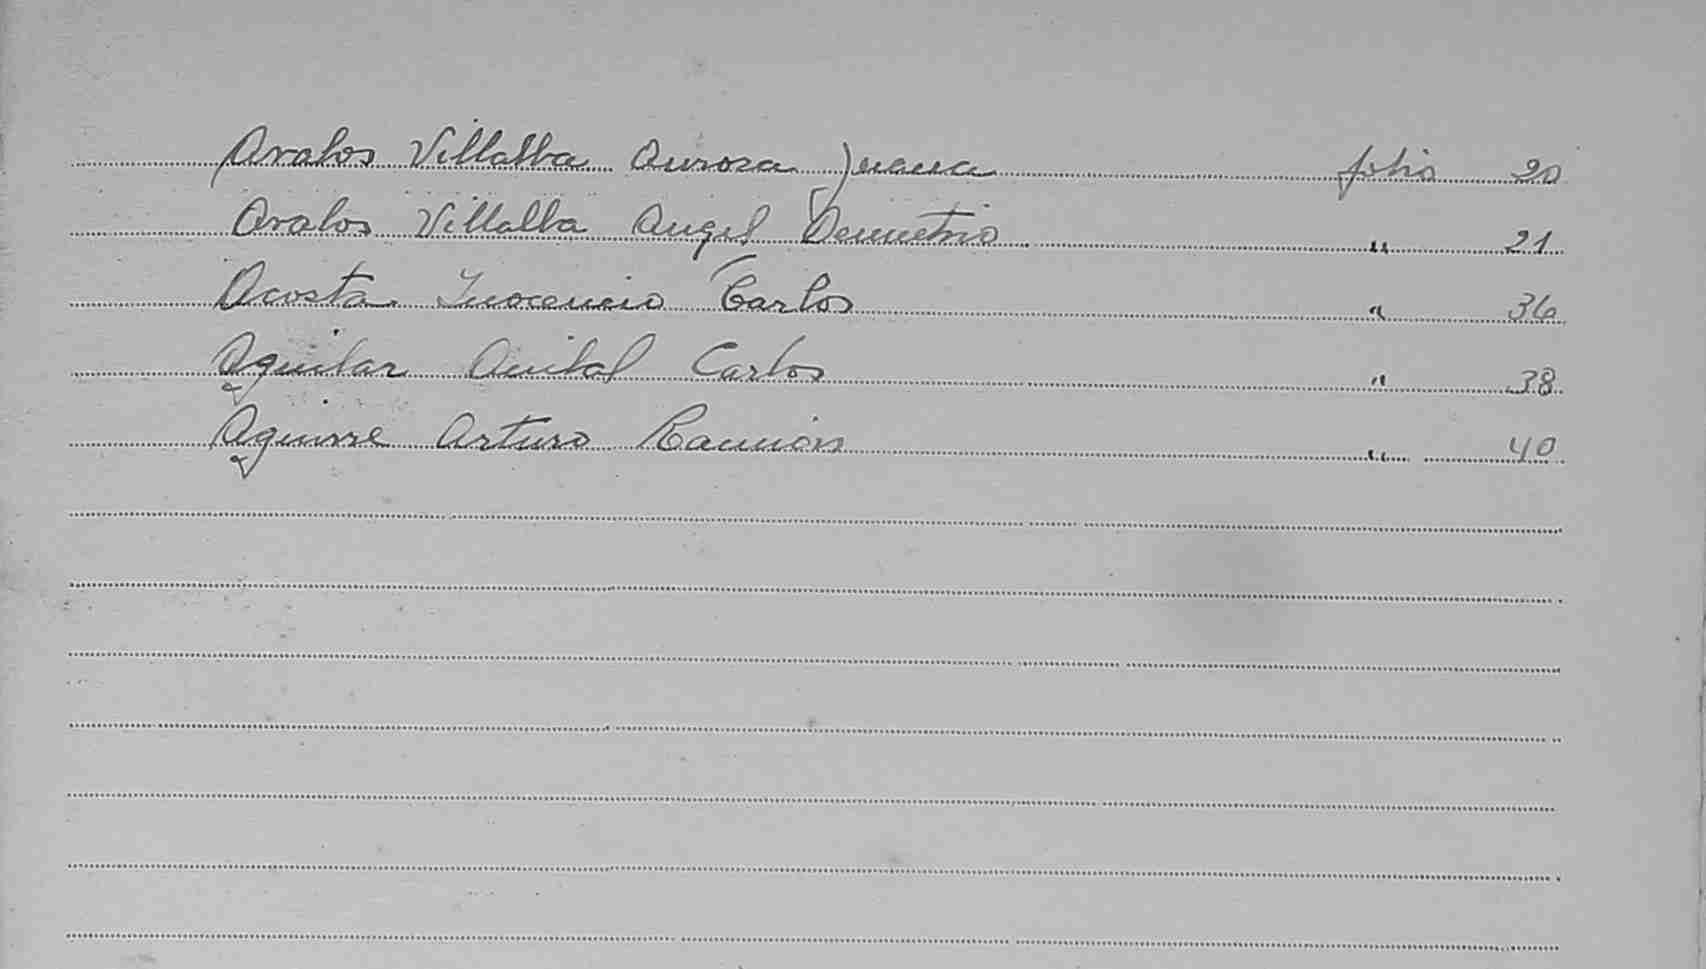 Avalos Villalba Aurora Juana folio 20
Avalos Villalba Angel Demetrio " 21
Acosta Inocencio Carlos " 36
Aguilar Anibal Carlos " 38
Aguirre Arturo Ramón " 40